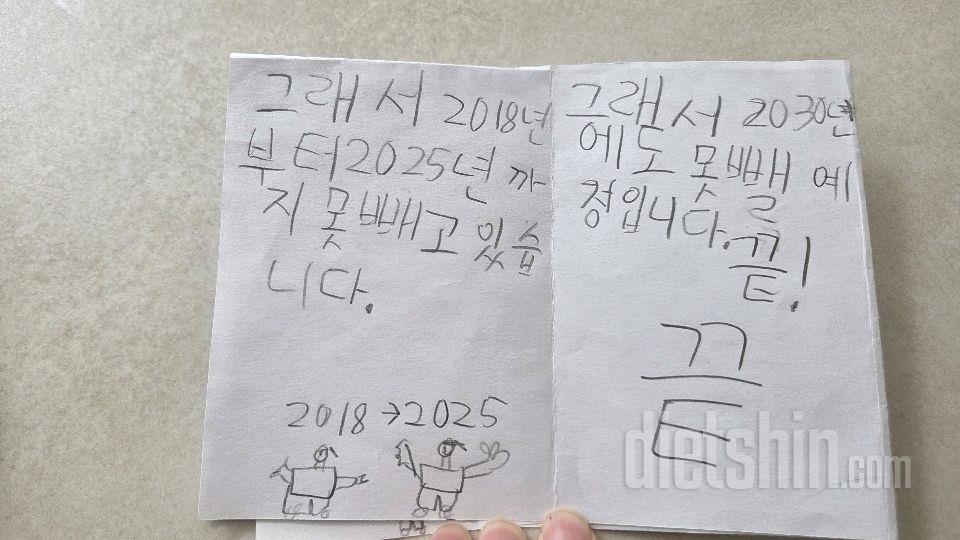 그래서 2018년
부터 2025년까
지 못빼고 있습
니다.
2018→2025
그래서 2030년
에도 못뺄 예
정입니다.
끝!
끝
dietshin.com